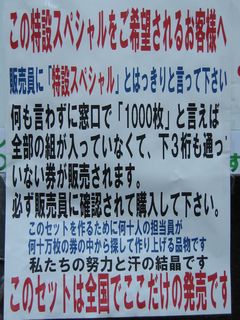 この特設スペシャルをご希望されるお客様へ
販売員に「特設スペシャル」とはっきりと言って下さい
何も言わずに窓口で「1000枚」と言えば
全部の組が入っていなくて、下3桁も通っ
いない券が販売されます。
必ず販売員に確認されて購入して下さい。
このセットを作るために何十人の担当員が
何十万枚の券の中から探して作り上げる品物です
私たちの努力と汗の結晶です
このセットは全国でここだけの発売です